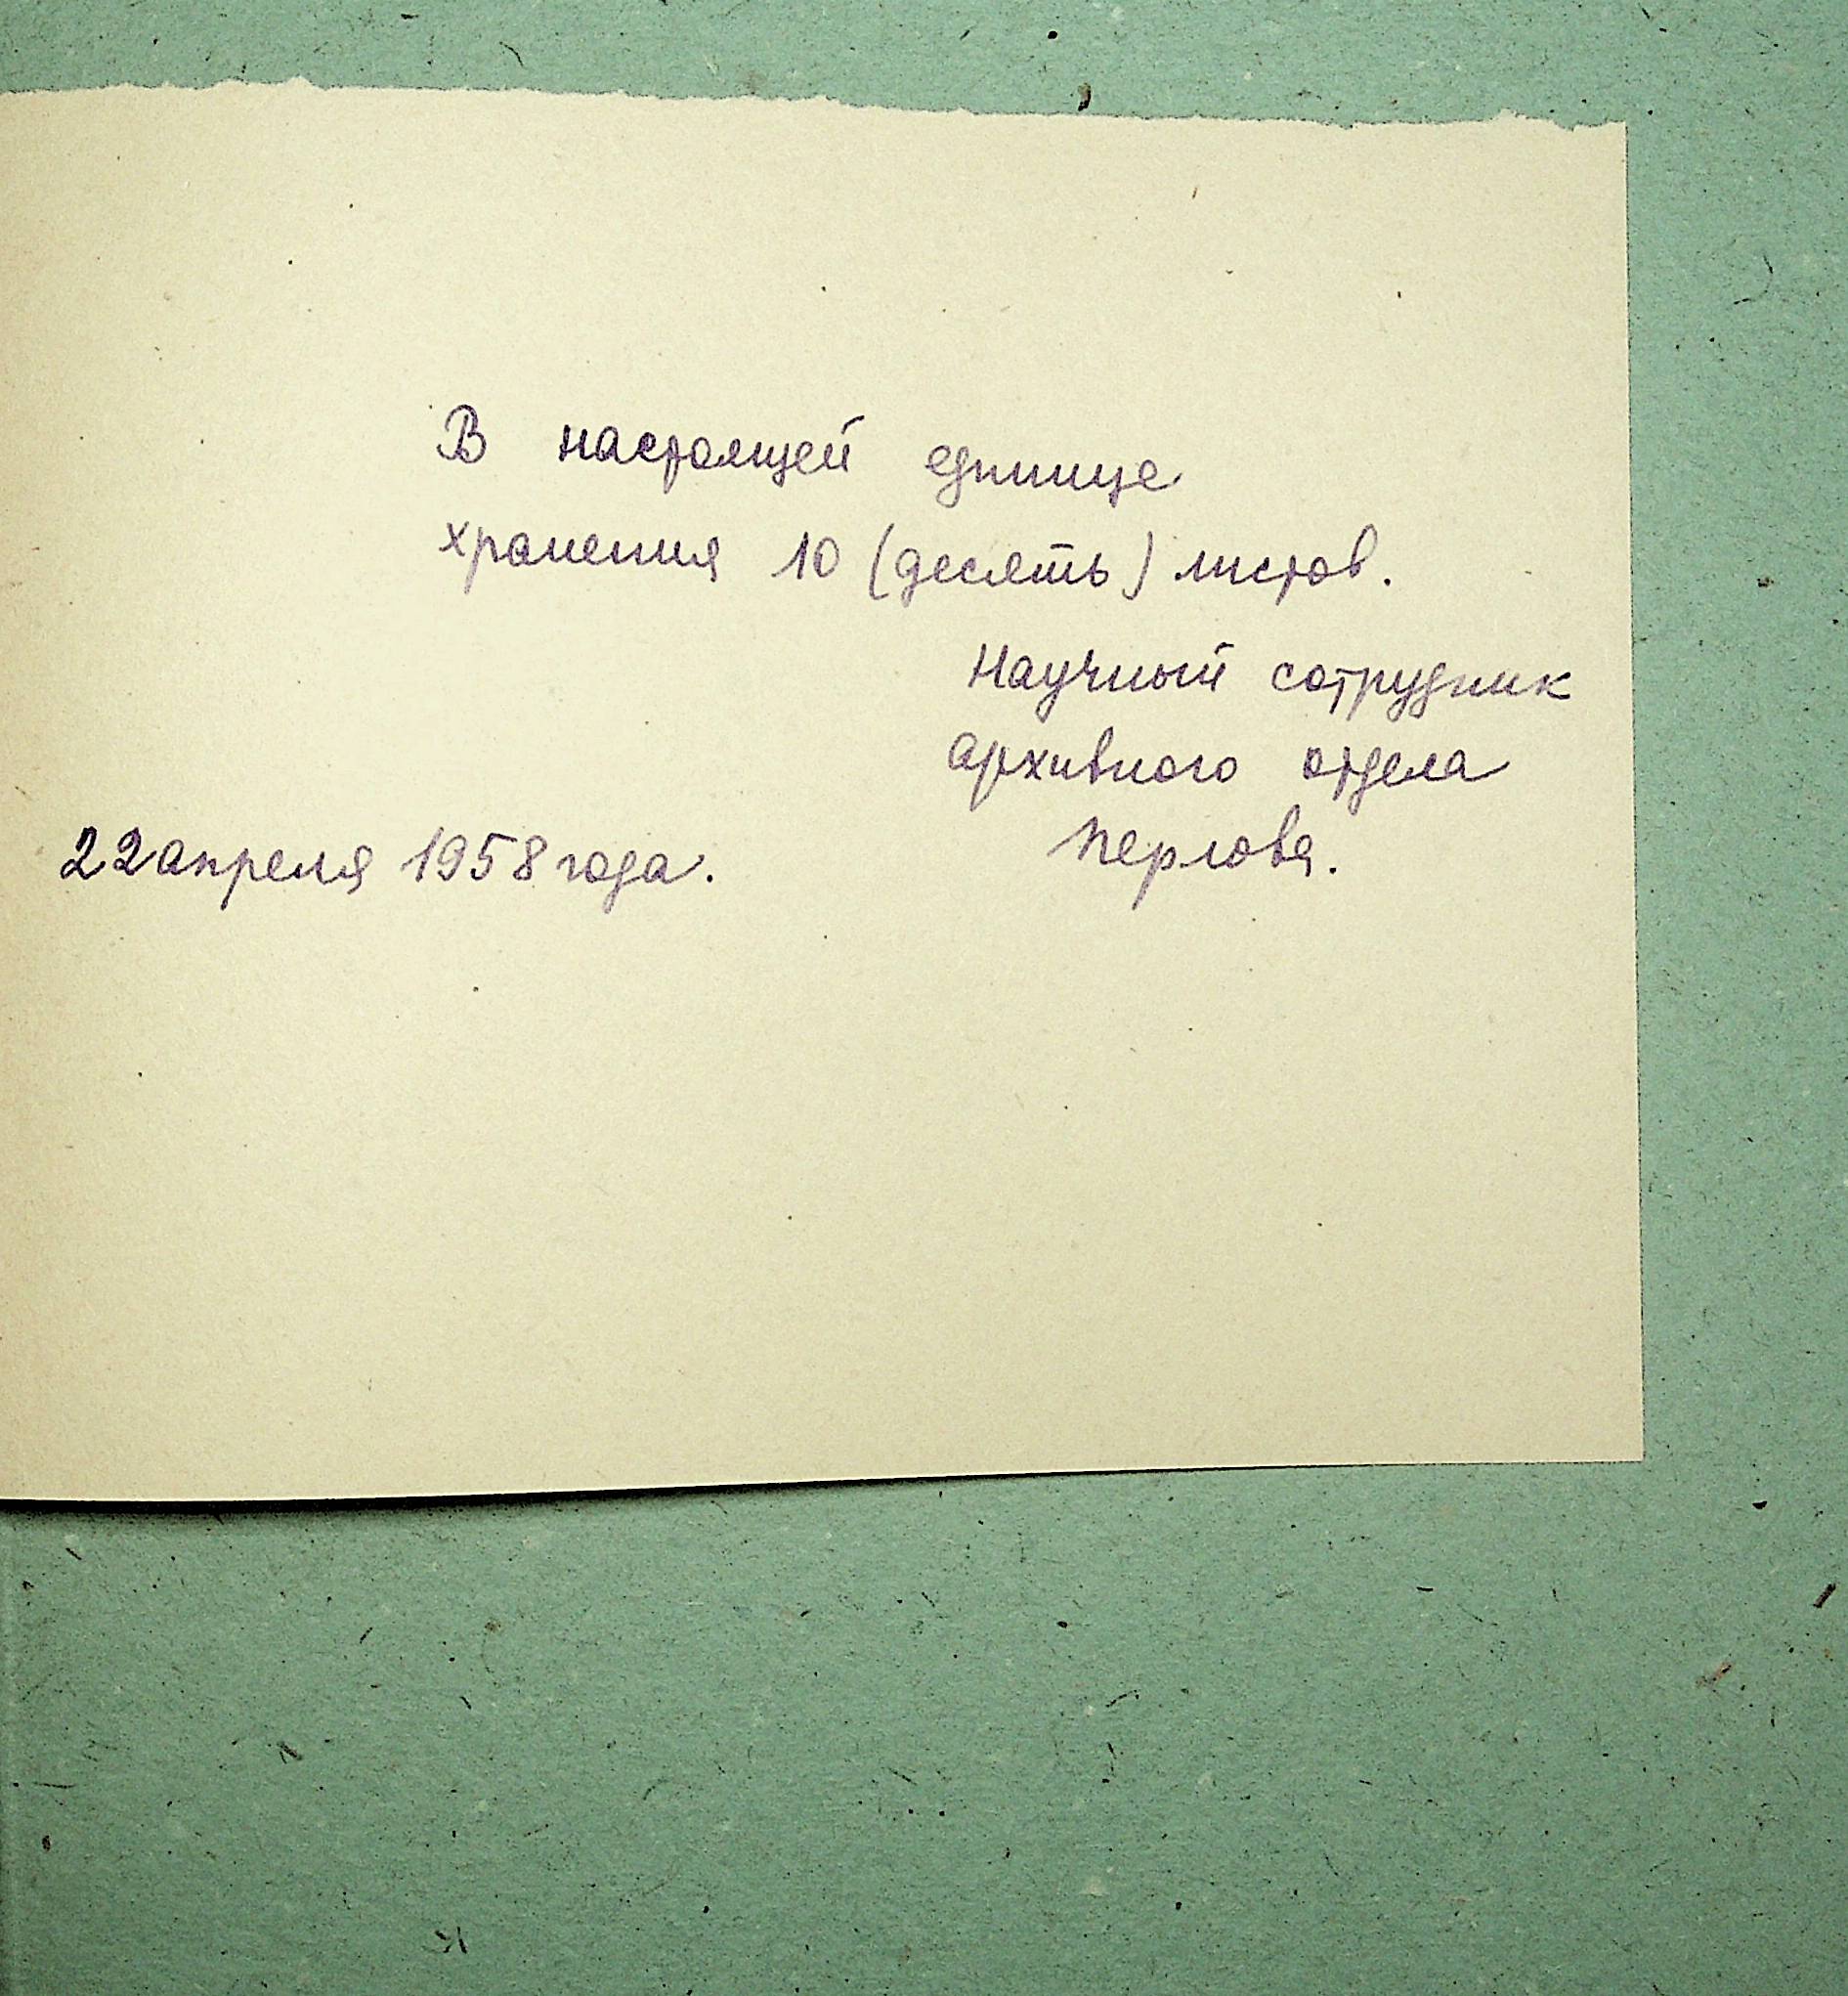 В настоящей единице
хранения 10 (десять) листов.
Научный сотрудник
архивного отдела
Перлова.
22 апреля 1958 года.